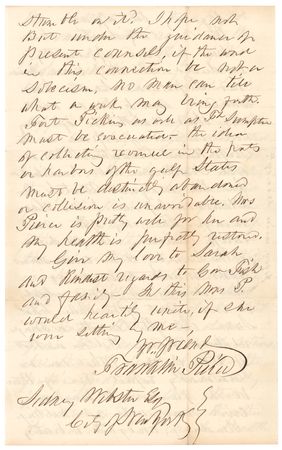 stumble on it? I hope not
But under the guidance of
Present counsels, if the word
in this connection be not a
solecism, no man can tell
what a week may bring forth.
Fort Pickens as well as Ft Sumpter
must be evacuated - the idea
of collecting revenue in the ports
or harbors of the gulf States
must be distinctly abandoned
or collision is unavoidable. Mrs
Pierce is pretty well for her and
my health is perfectly restored.
Give my love to Sarah
and kindest regards to Gov Fish
and family. In this Mrs P.
would heartily unite, if she
were sitting by me.
Yr. friend
Franklin Pierce
Sidney Webster Esq
City of New York